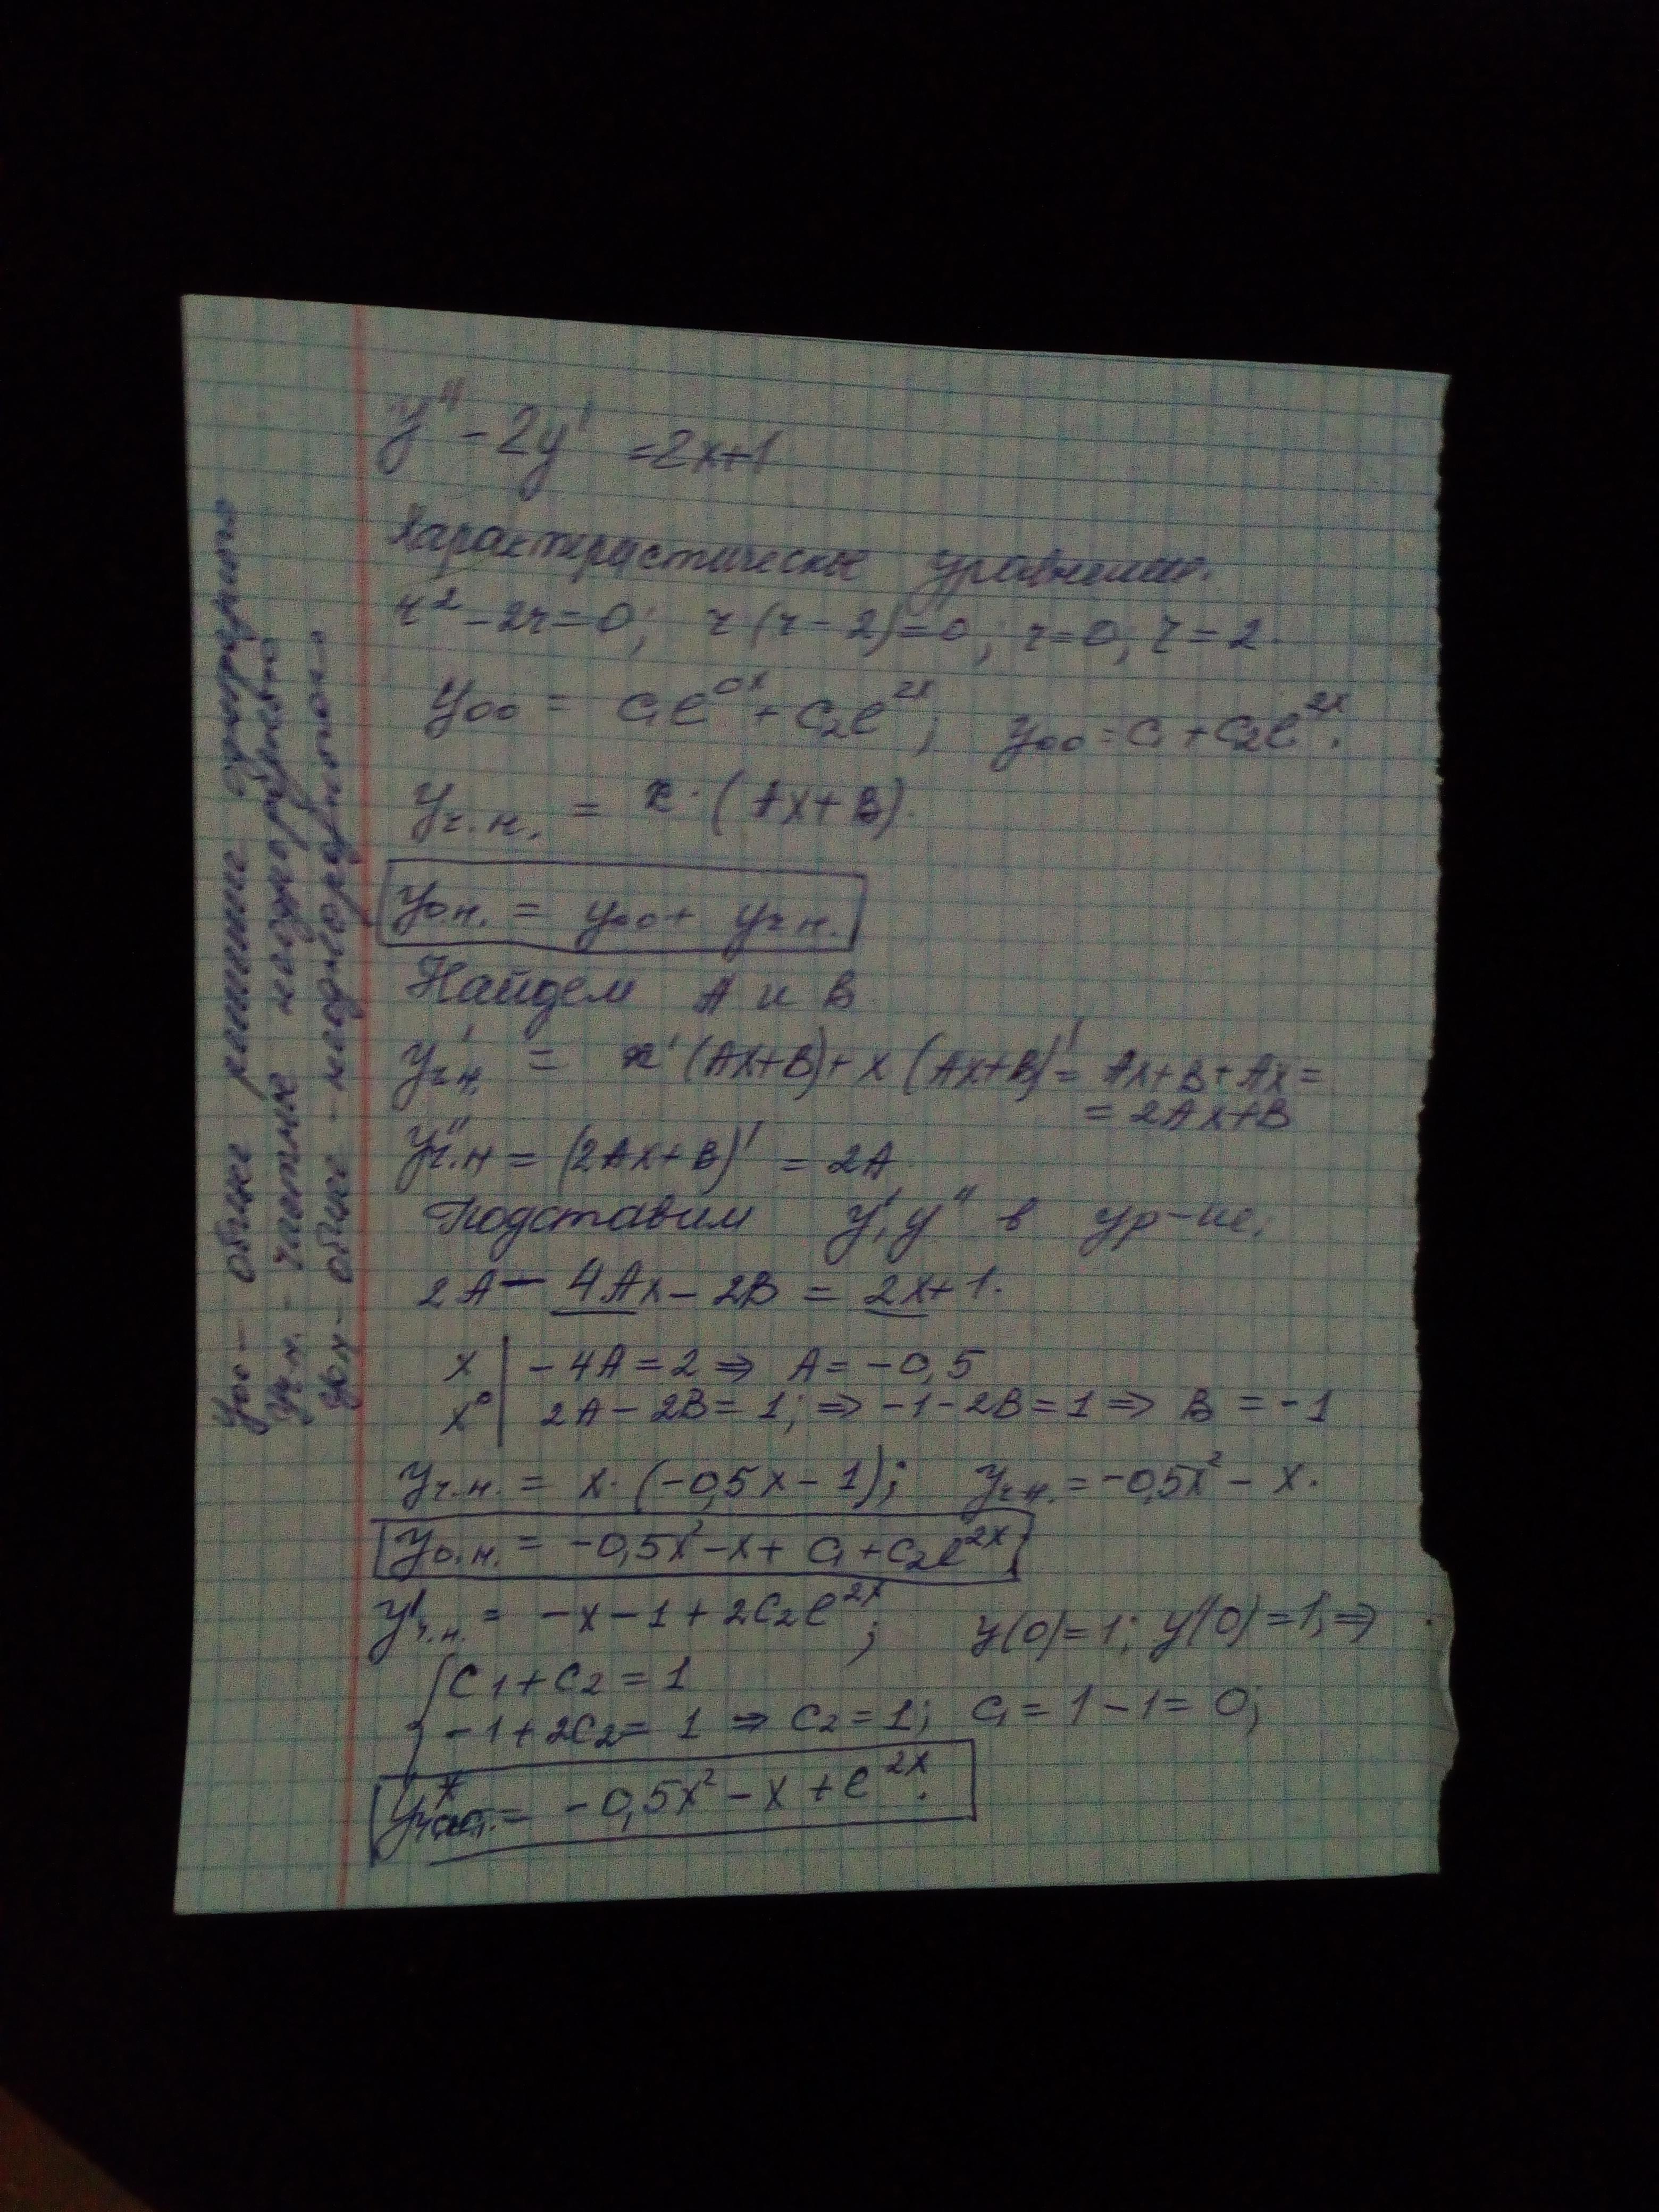 y'' - 2y' = 2x+1
Характеристическое уравнение.
r² - 2r = 0; r(r - 2) = 0; r = 0, r = 2.
yоо = C₁e^{0x} + C₂e^{2x}; yоо = C₁ + C₂e^{2x}.
yч.н. = x · (Ax+B).
yо.н. = yоо + yч.н.
Найдем A и B
y'ч.н. = x'(Ax+B) + x(Ax+B)' = Ax+B+Ax =
= 2Ax+B
y''ч.н = (2Ax+B)' = 2A
Подставим y', y'' в ур-ие,
2A - 4Ax - 2B = 2x+1.
x | -4A = 2 ⇒ A = -0,5
x⁰ | 2A - 2B = 1; ⇒ -1-2B = 1 ⇒ B = -1
yч.н. = x · (-0,5x - 1); yч.н. = -0,5x² - x.
yо.н. = -0,5x² - x + C₁ + C₂e^{2x}
y'ч.н. = -x - 1 + 2C₂e^{2x}; y(0)=1; y'(0)=1; ⇒
{ C₁ + C₂ = 1
-1 + 2C₂ = 1 ⇒ C₂ = 1; C₁ = 1 - 1 = 0;
y*час. = -0,5x² - x + e^{2x}.
yоо - общее решение однородного
yч.н. - частное неоднородного
yон - общее - неоднородного